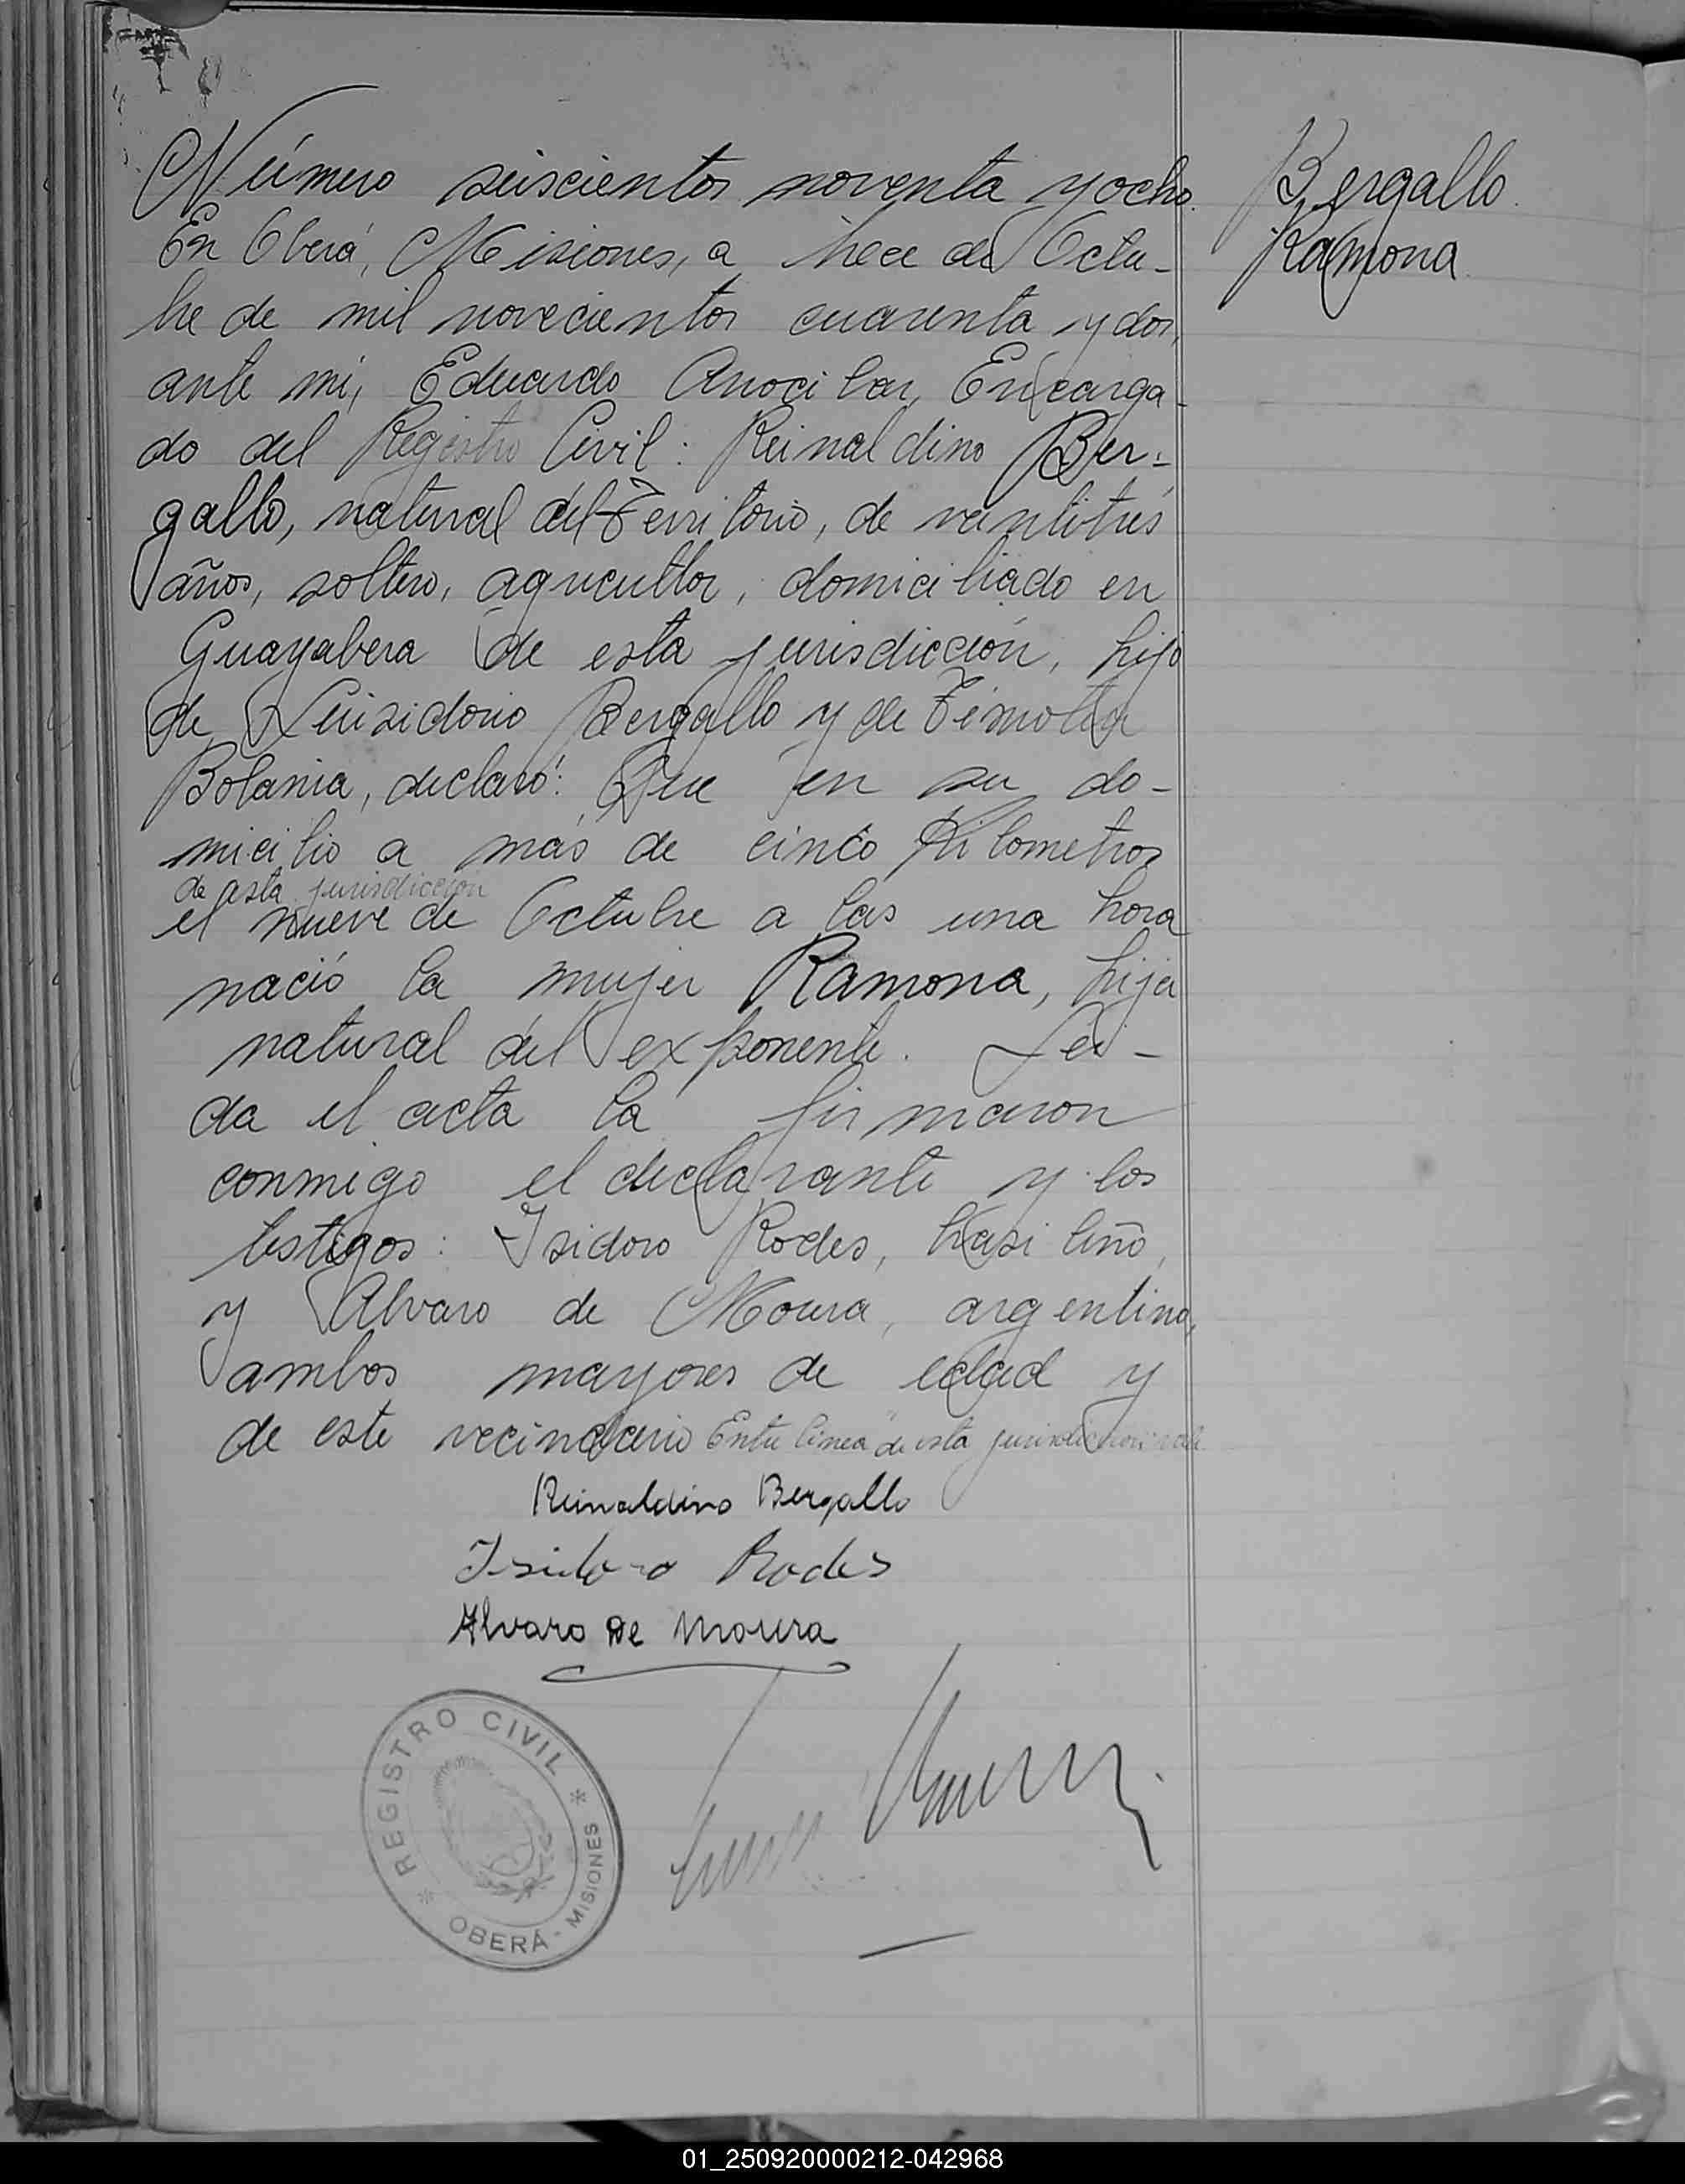 Número seiscientos noventa y ocho.
Bergallo
Ramona
En Oberá, Misiones, a trece de Octu-
bre de mil novecientos cuarenta y dos,
ante mi, Eduardo Encarga-
do del Registro Civil: Reinaldino Ber-
gallo, natural del Territorio, de veintitrés
años, soltero, agricultor, domiciliado en
Guayabera de esta jurisdicción, hijo
de Bergallo y de Timotea
Bolania, declaró: Que en su do-
micilio a más de cinco Kilometros
de esta jurisdicción
el nueve de Octubre a las una hora
nació la mujer Ramona, hija
natural del exponente. Lei-
da el acta la firmaron
conmigo el declarante y los
testigos: Isidoro Rodes, brasileño,
y Alvaro de Moura, argentino,
ambos mayores de edad y
de este vecindario Entre linea "de esta jurisdiccion" vale
Reinaldino Bergallo
Isidoro Rodes
Alvaro De Moura
REGISTRO CIVIL
OBERÁ - MISIONES
01_250920000212-042968